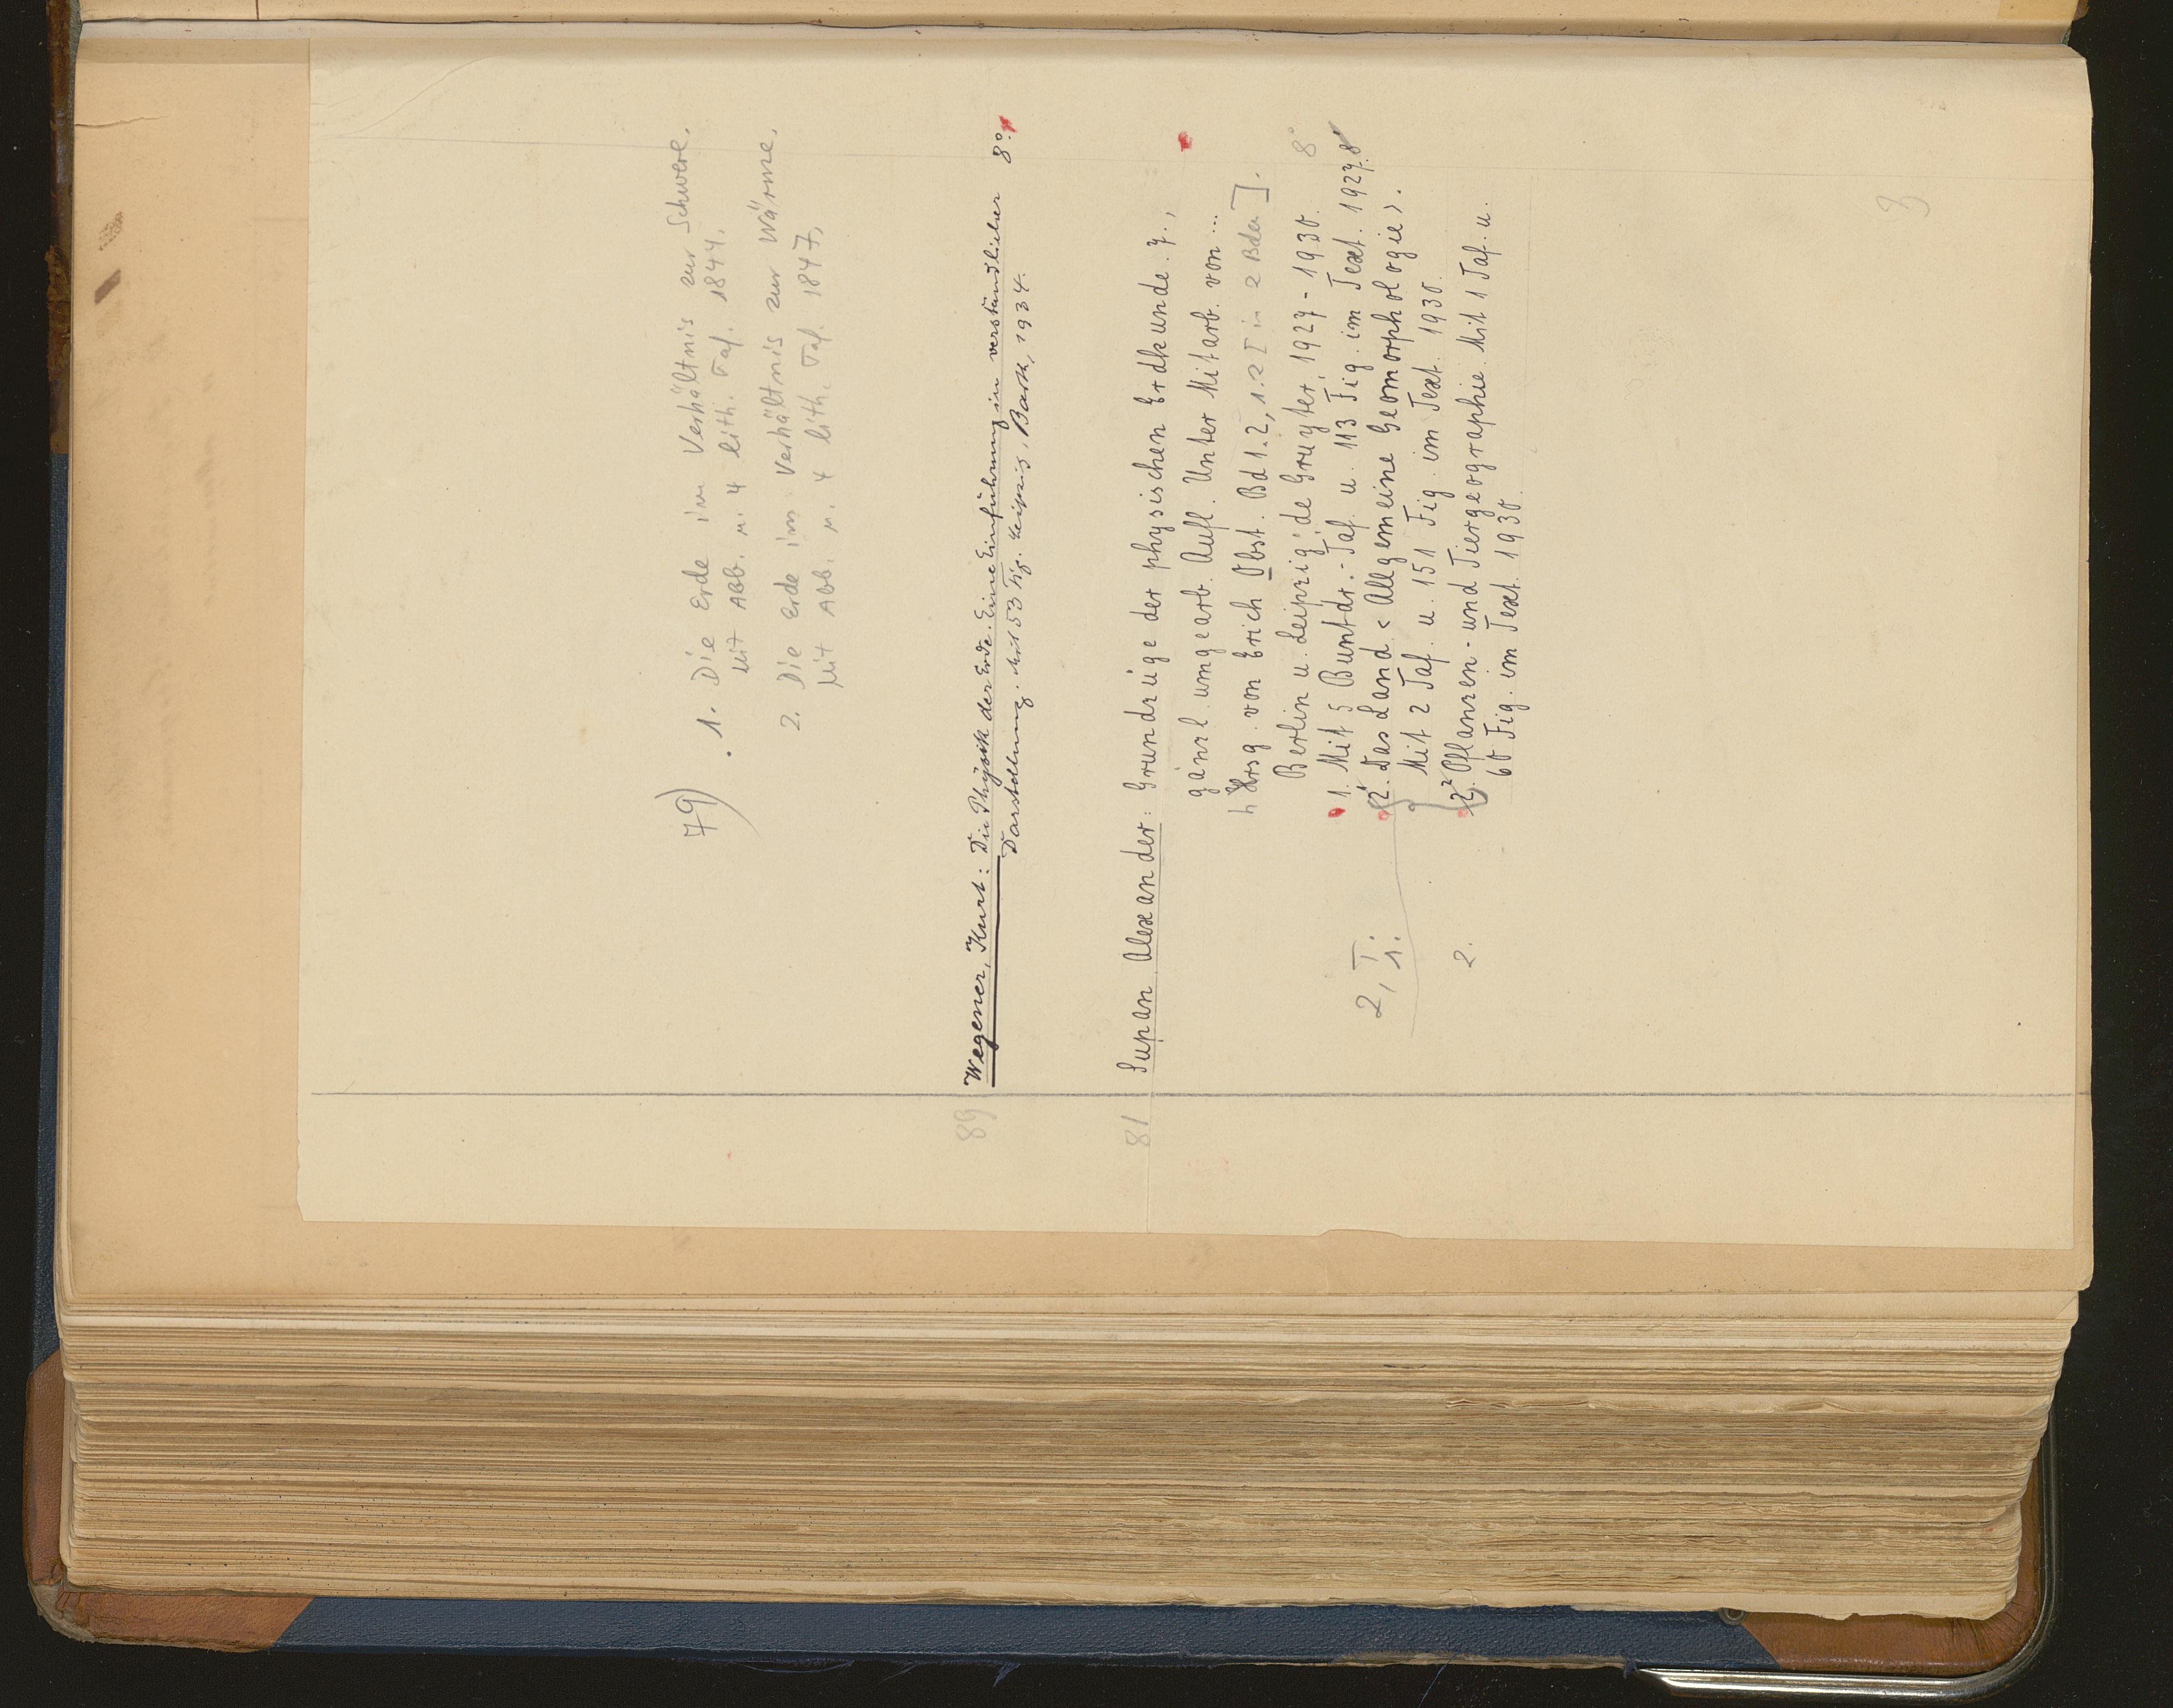 79)
1. Die Erde im Verhältnis zur Schwere.
Mit Abb. u. 4 lith. Taf. 1844.
2. Die Erde im Verhältnis zur Wärme.
Mit Abb. u. 4 lith. Taf. 1847.
89
Wegener, Kurt: Die Physik der Erde. Eine Einführung in verständlicher
Darstellung. Mit 53 Fig. Leipzig, Barth, 1934. 8°.
81
Supan, Alexander: Grundzüge der physischen Erdkunde. 7.,
gänzl. umgearb. Aufl. Unter Mitarb. von ...
hrsg. von Erich Obst. Bd 1.2, 1.2 [in 2 Bden].
Berlin u. Leipzig: de Gruyter, 1927-1930. 8°
1. Mit 5 Buntdr.-Taf. u. 113 Fig. im Text. 1927. 8°
2, I. 1. 2¹. Das Land <Allgemeine Geomorphologie>.
Mit 2 Taf. u. 151 Fig. im Text. 1930.
2. 2². Pflanzen- und Tiergeographie. Mit 1 Taf. u.
60 Fig. im Text. 1930.